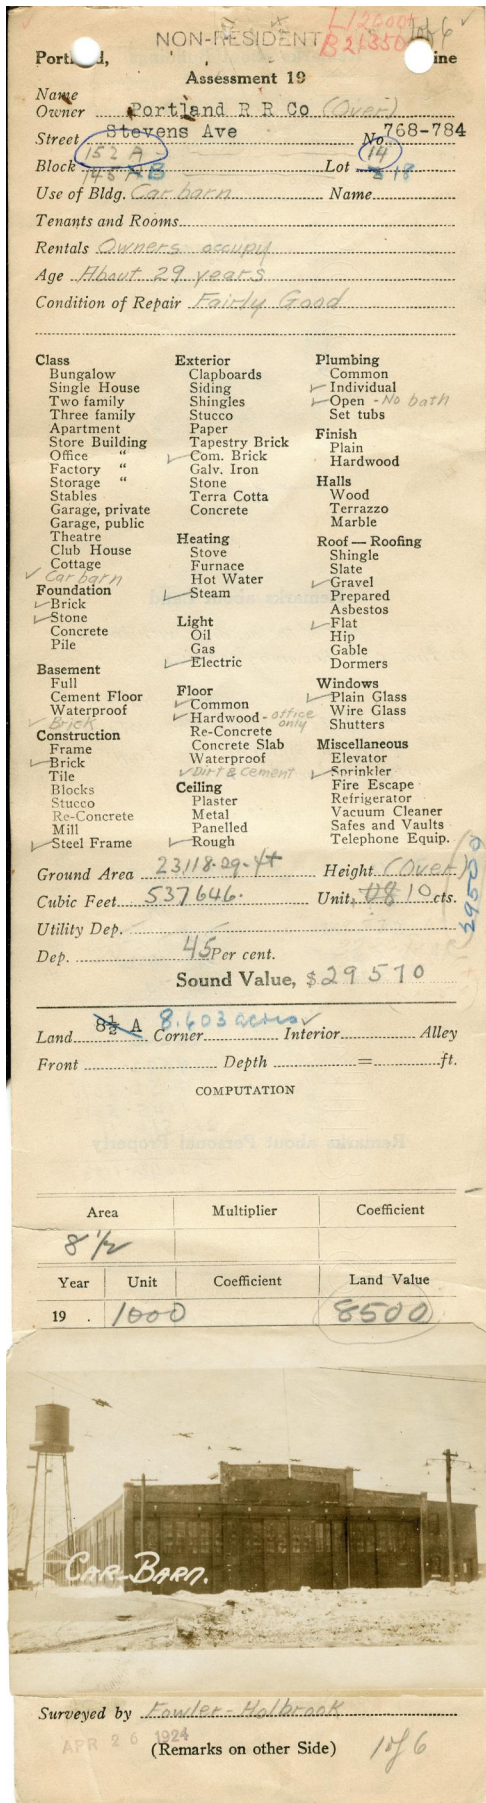 NON-RESIDENT
L12000+
B21350
1 of 6
Portland, Maine
Assessment 19
Name
Owner Portland R R Co (Over)
Street Stevens Ave No 768-784
152 A 14
Block 145 A B Lot 18
Use of Bldg. Car barn Name
Tenants and Rooms
Rentals Owners occupy
Age About 29 years
Condition of Repair Fairly Good
Class
Bungalow
Single House
Two family
Three family
Apartment
Store Building
Office "
Factory "
Storage "
Stables
Garage, private
Garage, public
Theatre
Club House
Cottage
✓ Car barn
Foundation
✓ Brick
✓ Stone
Concrete
Pile
Basement
Full
Cement Floor
Waterproof
✓ Brick
Construction
Frame
✓ Brick
Tile
Blocks
Stucco
Re-Concrete
Mill
✓ Steel Frame
Exterior
Clapboards
Siding
Shingles
Stucco
Paper
Tapestry Brick
✓ Com. Brick
Galv. Iron
Stone
Terra Cotta
Concrete
Heating
Stove
Furnace
Hot Water
✓ Steam
Light
Oil
Gas
✓ Electric
Floor
✓ Common
✓ Hardwood - office only
Re-Concrete
Concrete Slab
Waterproof
✓ Dirt & Cement
Ceiling
Plaster
Metal
Panelled
✓ Rough
Plumbing
Common
✓ Individual
✓ Open - No bath
Set tubs
Finish
Plain
Hardwood
Halls
Wood
Terrazzo
Marble
Roof — Roofing
Shingle
Slate
✓ Gravel
Prepared
Asbestos
✓ Flat
Hip
Gable
Dormers
Windows
✓ Plain Glass
Wire Glass
Shutters
Miscellaneous
Elevator
✓ Sprinkler
Fire Escape
Refrigerator
Vacuum Cleaner
Safes and Vaults
Telephone Equip.
Ground Area 23118.09.4+ Height (Over)
Cubic Feet 537646. Unit 08 10 cts.
29500
Utility Dep.
Dep. 45 Per cent.
Sound Value, $29570
8½ A 8.603 acres ✓
Land Corner Interior Alley
Front Depth = ft.
COMPUTATION
Area Multiplier Coefficient
8 1/2
Year Unit Coefficient Land Value
19 . 1000 8500
CAR BARN.
Surveyed by Fowler-Holbrook
APR 26 1924
(Remarks on other Side) 1 of 6